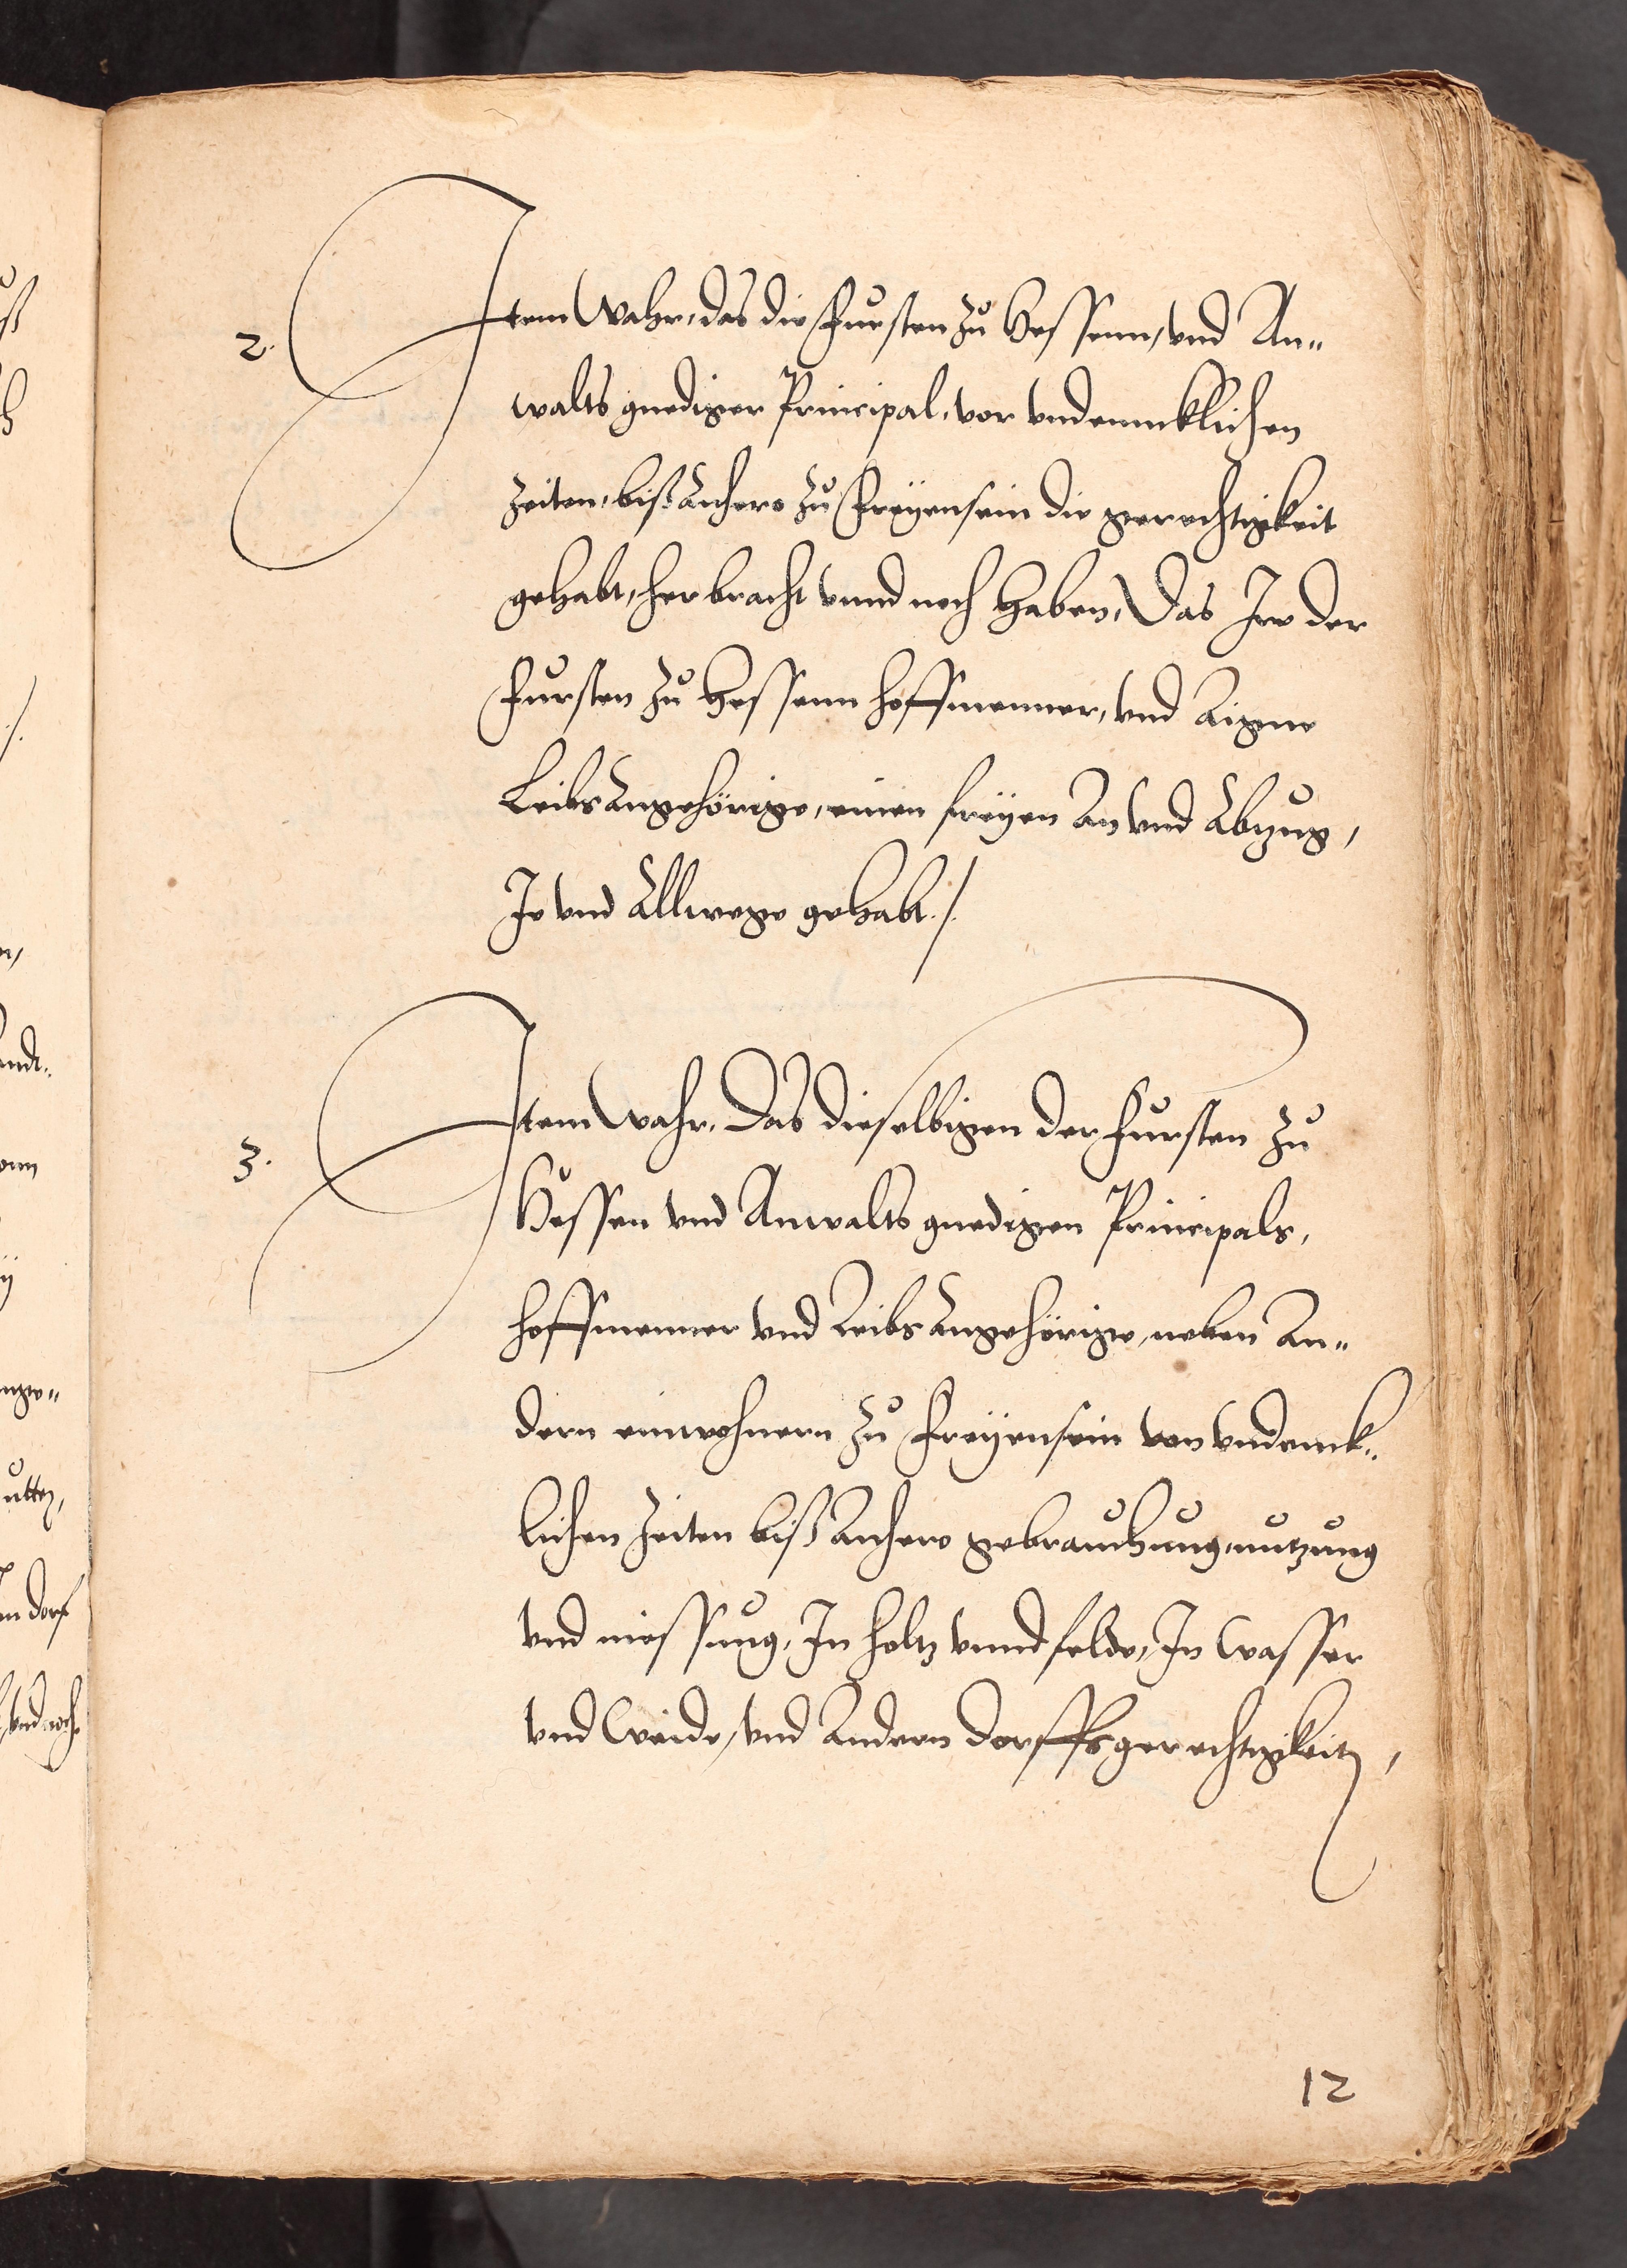 2.
Item Wahr, das die Fursten zu Hessenn, vnd An„
walts gnediger Principal, vor vndenncklichen
Zeiten, biß Anhero zu Freÿensein die gerechtigkeit
gehabt, herbracht vnnd noch haben, Das Ire der
Fursten zu Hessenn hoffmenner, vnd Aigne
Leibs Angehörige, einen freÿen An vnd Abzug,
Je vnd Allwege gehabt./.
3.
Item Wahr, Das dieselbigen der Fursten zu
Hessen vnd Anwalts gnedigen Principals,
hoffmenner vnd Leibs Angehörige, neben An„
dern einwohnern zu Freÿensein von vndenck„
lichen Zeiten biß Anhero gebrauchung, nutzung
vnd niessung, In holtz vnnd felde, In Wasser
vnd Weide, vnd Andern dorffsgerechtigkeitn,
12